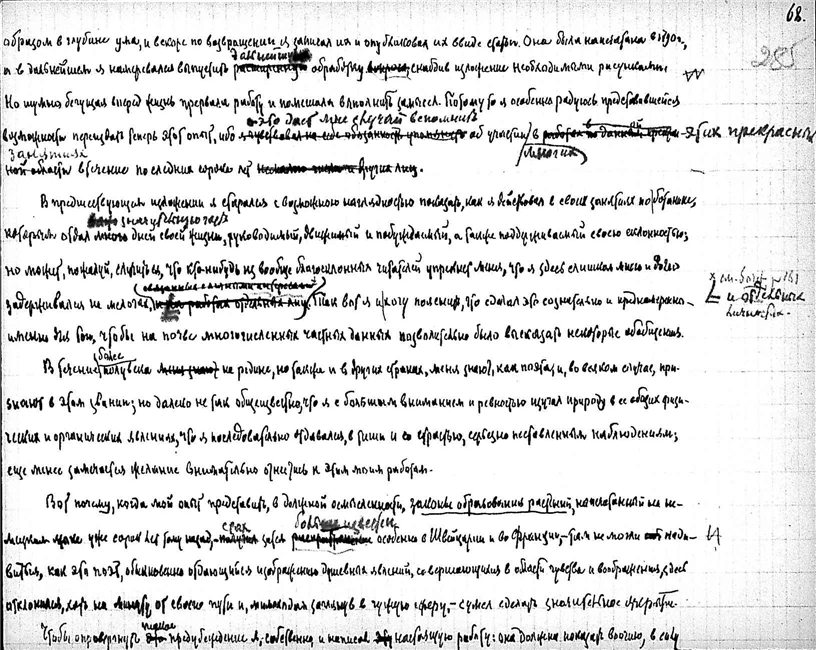 68.
285
образом в глубине ума, и вскоре по возвращении я записал их и опубликовал их в виде статьи. Она была напечатана в 1790 г.,
дальнейшую
а в дальнейшем я намеревался выпустить обработку снабдив изложение необходимыми рисунками.
Но шумно бегущая вперед жизнь прервала работу и помешала выполнить замысел. Потому то я особенно радуюсь представившейся
это дает мне случай вспомнить
возможности переиздать теперь этот опыт, ибо об участии в этих прекрасных
занятиях многих
в течение последних сорока лет других лиц.
В предшествующем изложении я старался с возможною наглядностью показать, как я действовал в своих занятиях по ботанике,
которым отдал много дней своей жизни, руководимый, движимый и побуждаемый, а также поддерживаемый своею склонностью;
но может, пожалуй, случиться, что кто-нибудь из вообще благосклонных читателей упрекнет меня, что я здесь слишком много и долго
задерживался на мелочах, Так вот я и хочу пояснить, что сделал это сознательно и преднамеренно
и отдельных
личностях.
именно для того, чтобы на почве многочисленных частных данных позволительно было высказать некоторые обобщения.
более
В течение полувека на родине, но также и в других странах, меня знают, как поэта и, во всяком случае, при-
знают в этом звании; но далеко не так общеизвестно, что я с большим вниманием и ревностью изучал природу в ее общих физи-
ческих и органических явлениях, что я последовательно отдавался, в тиши и со страстью, серьезно поставленным наблюдениям;
еще менее замечается желание внимательно отнестись к этим моим работам.
Вот почему, когда мой опыт представить, в должной осмысленности, законы образования растений, напечатанный на не-
мецком языке уже сорок лет тому назад, стал
больше известен
особенно в Швейцарии и во Франции, — там не могли нади-
виться, как это поэт, обыкновенно отдающийся изображению душевных явлений, совершающихся в области чувства и воображения, здесь
отклонился, хоть на минуту, от своего пути и, мимоходом заглянув в чужую сферу, — сумел сделать значительное открытие.
Чтобы опровергнуть предубеждение я, собственно, и написал настоящую работу: она должна показать воочию, в силу